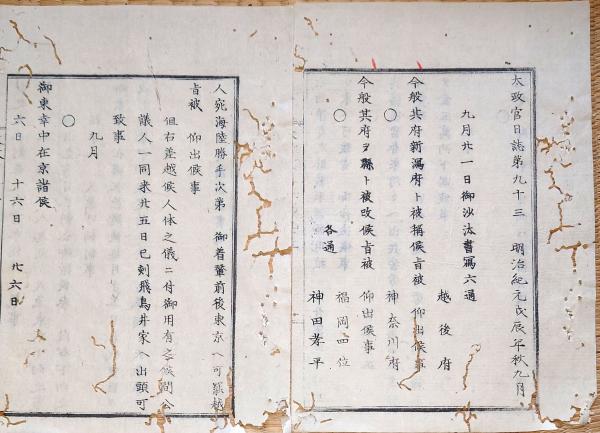 太政官日誌第九十三 明治紀元戊辰年秋九月
○
九月廿一日御沙汰書寫六通
越後府
今般其府新潟府ト被稱候旨被 仰出候事
○ 神奈川府
今般其府ヲ縣ト被改候旨被 仰出候事
○ 各通 福岡四位
神田孝平
人宛海陸勝手次第 御着輦前後東京ヘ可罷越
旨被 仰出候事
但右差越候人体之儀ニ付御用有之候間公
議人一同来廿五日巳刻飛鳥井家ヘ出頭可
致事
九月
○
御東幸中在京諸侯
六日 十六日 廿六日